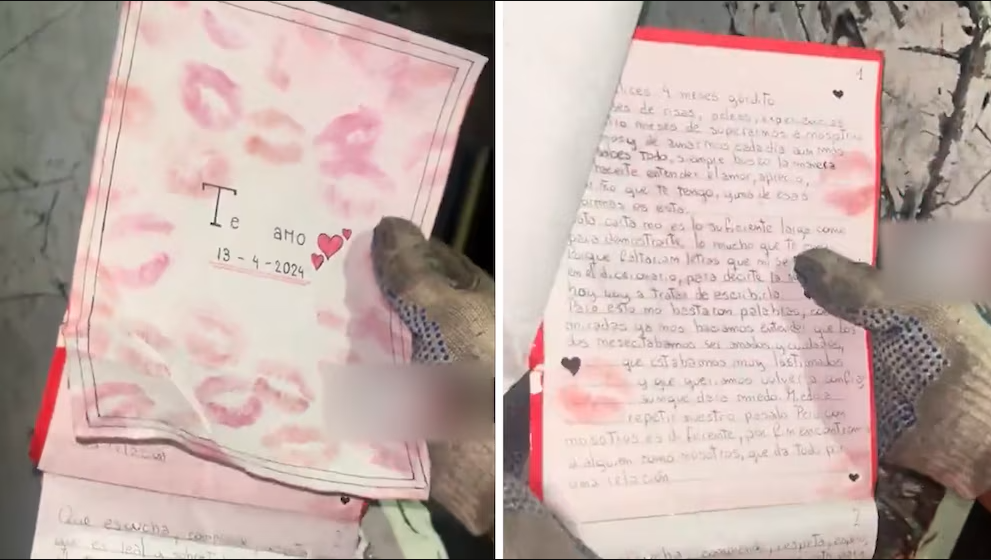 Te amo
13-4-2024
Que escucha,
que es leal
1
lices 4 meses gordito
es de risas,
meses de superarnos a nosotros
y de amarnos cada dia aun más
haces Todo, siempre busco la manera
hacerte entender el amor, aprecio,
que te tengo, y una de esas
es esta.
carta no es lo suficiente larga como
para demostrarte lo mucho que te
Porque faltarian letras que
en el diccionario, para decirte lo
hoy voy a tratar de escribirlo
Pero esto no bastaron palabras, con
miradas ya nos haciamos entender que los
dos necesitabamos ser amados y cuidados,
que estabamos muy lastimados
y que queriamos volver a confiar
aunque daba miedo.
repetir nuestro pasado Pero con
nosotros es diferente, por fin encontramos
a alguien como nosotros, que da todo por
una relación
2
escucha, comprende, respeta,